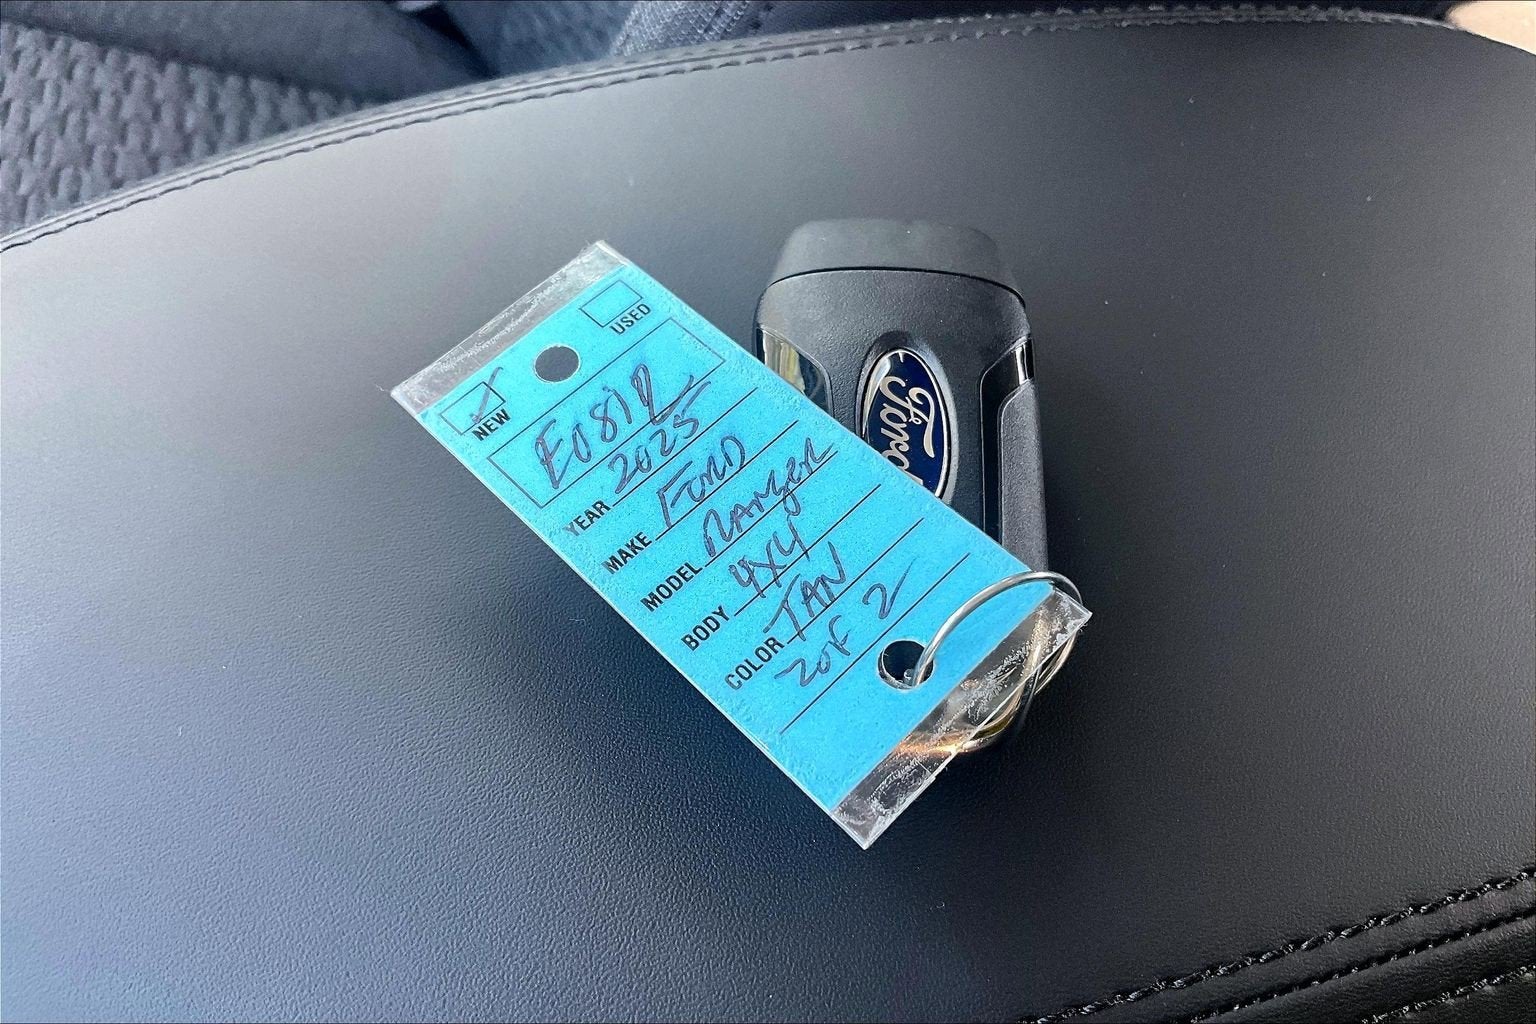 USED
NEW
E0812
YEAR 2025
MAKE FORD
MODEL RANGER
BODY 4X4
COLOR TAN
2 OF 2
Ford